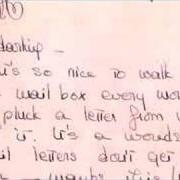 darling -
it's so nice to walk
mail box every mor
pluck a letter from
it. It's a wonde
letters don't get